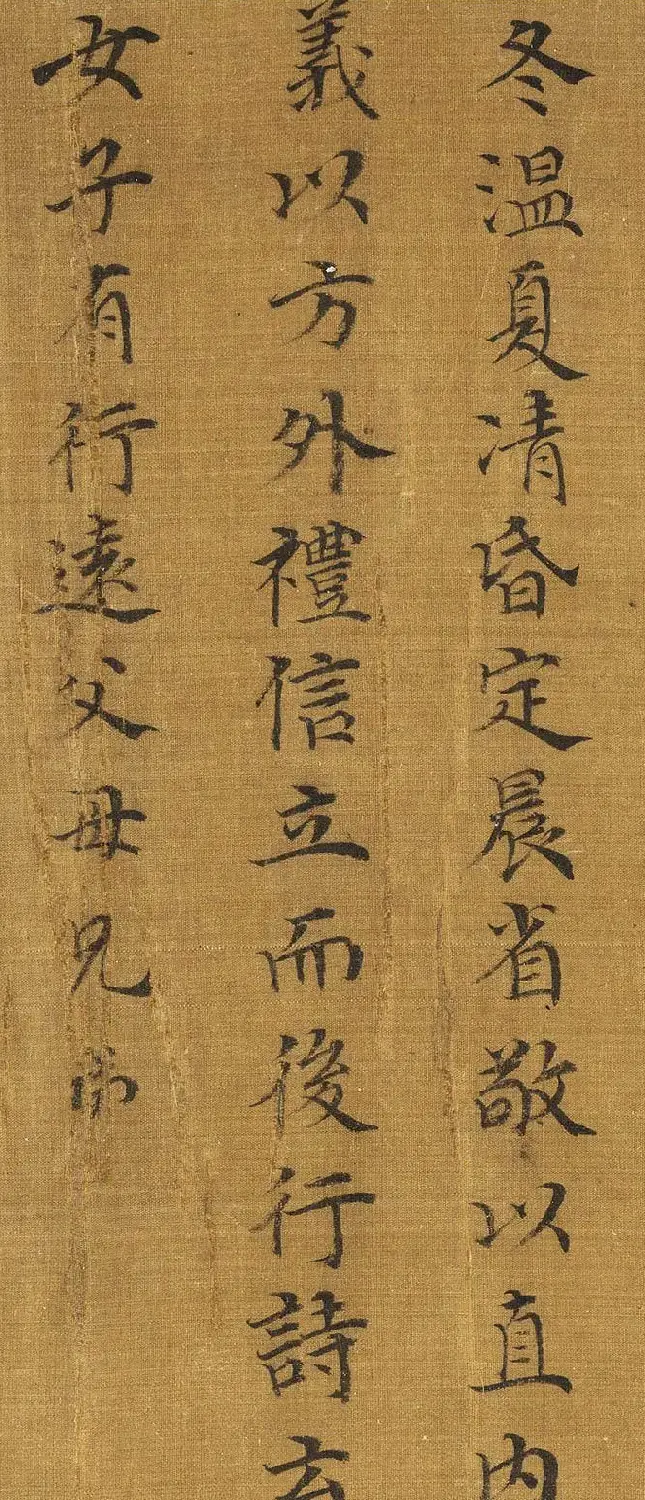 冬温夏凊昏定晨省敬以直内
義以方外禮信立而後行詩云
女子有行遠父母兄弟